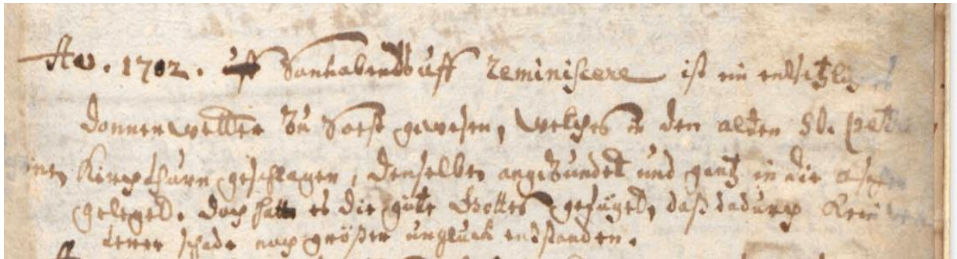 Ao. 1702. uff Sonnabendts uff Reminiscere ist ein entsetzlich
donnerwetter zu Soest gewesen, welches in den alten St. Petri
Kirchthurn geschlagen, denselben angezundet und gantz in die aschen
geleget. doch hatte es die gute Gottes gefüget, daß dadurch kein
schade noch größer ungluck entstanden.